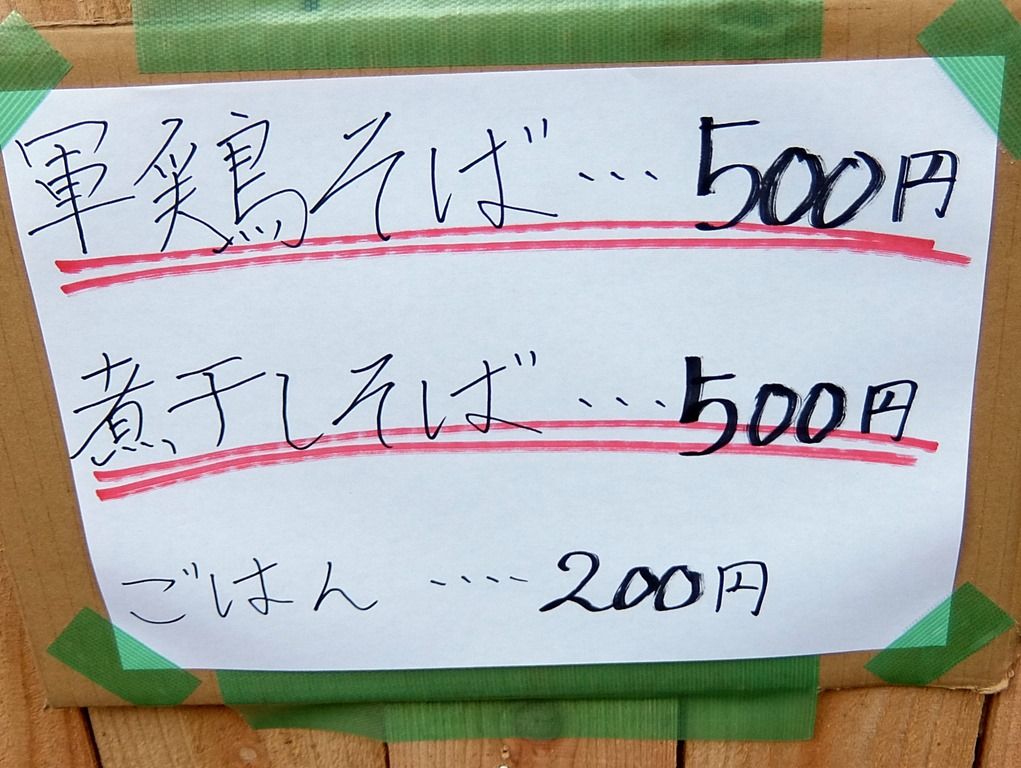 軍鶏そば… 500円
煮干しそば…500円
ごはん ‥‥200円